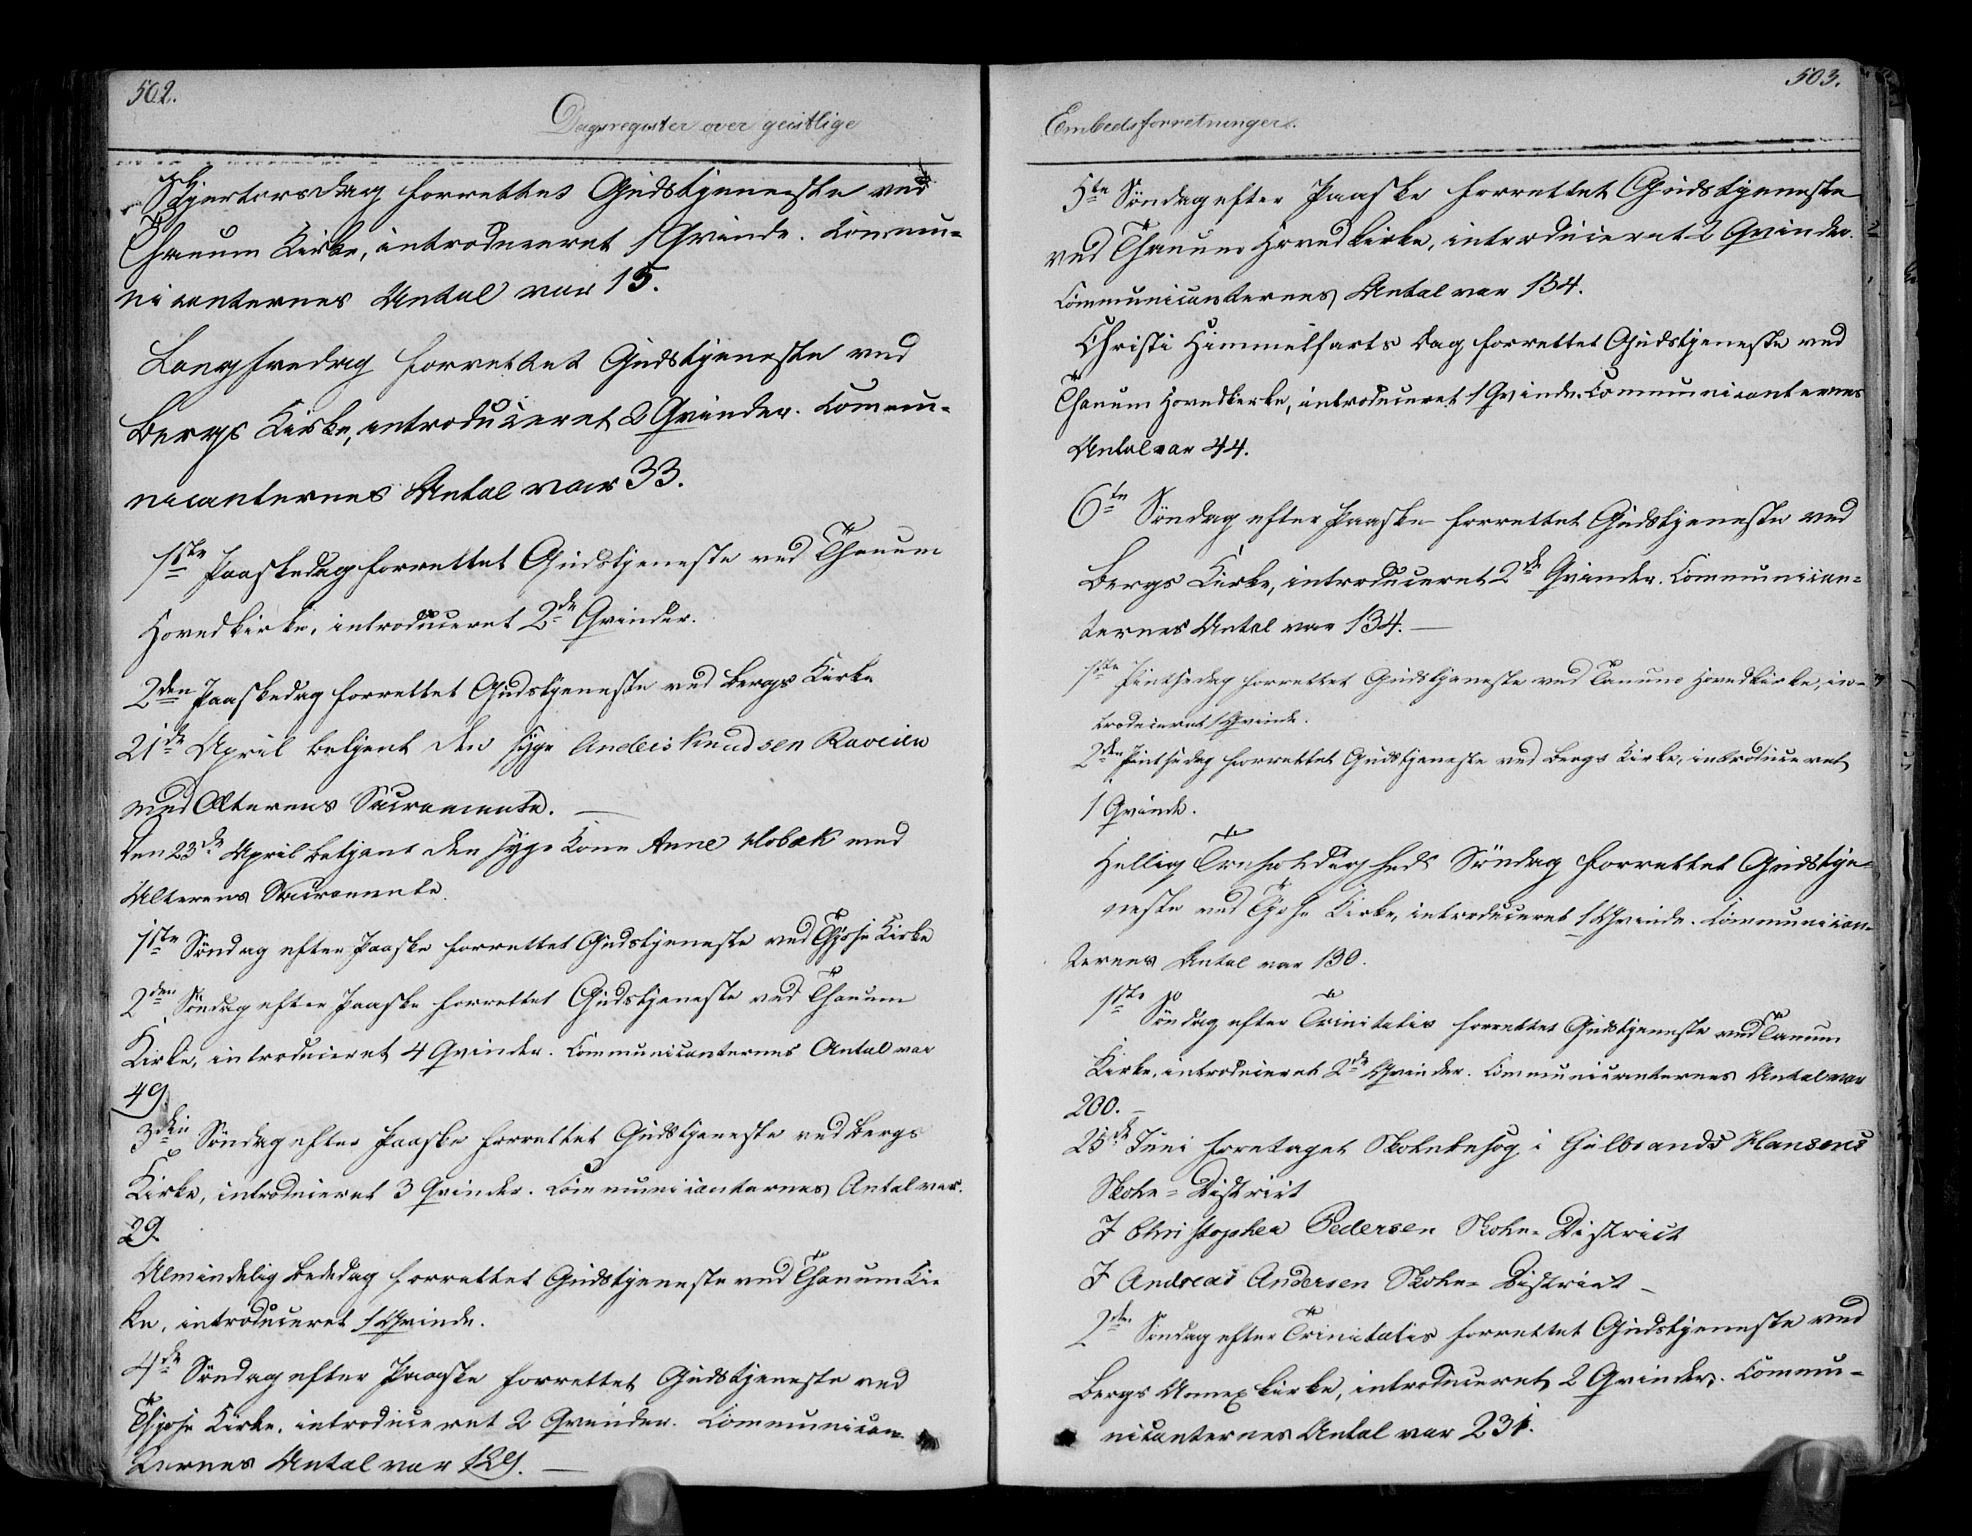 502.
Dagsregister over geistlige
Skjertorsdag forrettet Gudstjeneste ved
Thanum Kirke, introduceret 1 Qvinde. Commu-
nicanternes Antal var 15.
Langfredag forrettet Gudstjeneste ved
Bergs Kirke, introduceret 2 Qvinder. Commu-
nicanternes Antal var 33.
1ste Paaskedag forrettet Gudstjeneste ved Thanum
Hovedkirke, introduceret 2de Qvinder.
2den Paaskedag forrettet Gudstjeneste ved Bergs Kirke
21de April betjent den syge Anders Knudsen Raveien
med Alterens Sacramente.
Den 23de April betjent den syge Kone Anne Hobæk med
Alterens Sacramente.
1ste Søndag efter Paaske forrettet Gudstjeneste ved Kirke
2den Søndag efter Paaske forrettet Gudstjeneste ved Thanum
Kirke, introduceret 4 Qvinder. Communicanternes Antal var
49.
3die Søndag efter Paaske forrettet Gudstjeneste ved Bergs
Kirke, introduceret 3 Qvinder. Communicanternes Antal var.
29.
Almindelig Bededag forrettet Gudstjeneste ved Thanum Kir
ke, introduceret 1 Qvinde.
4de Søndag efter Paaske forrettet Gudstjeneste ved
Kirke, introduceret 2 Qvinder. Communican-
ternes Antal var
503.
Embedsforretninger.
5te Søndag efter Paaske forrettet Gudstjeneste
ved Thanum Hovedkirke, introduceret 2 Qvinder.
Communicanternes Antal var 134.
Christi Himmelfarts Dag forrettet Gudstjeneste ved
Thanum Hovedkirke, introduceret 1 Qvinde. Communicanternes
Antal var 44.
6te Søndag efter Paaske forrettet Gudstjeneste ved
Bergs Kirke, introduceret 2de Qvinder. Communican-
ternes Antal var 134.
1ste Pintsedag forrettet Gudstjeneste ved Tanums Hovedkirke, in-
troduceret 1 Qvinde.
2den Pintsedag forrettet Gudstjeneste ved Bergs Kirke, introduceret
1 Qvinde.
Hellig Trefoldigheds Søndag forrettet Gudstje-
neste ved Kirke, introduceret 1 Qvinde. Communican-
ternes Antal var 130.
1ste Søndag efter Trinitatis forrettet Gudstjeneste ved Tanum
Kirke, introduceret 2de Qvinder. Communicanternes Antal var
200.
25de Juni foretaget Skolebesøg i Gulbrands Hansens
Skole-District
I Christopher Pedersen Skole-District
I Andreas Andersen Skole-District
2den Søndag efter Trinitatis forrettet Gudstjeneste ved
Bergs Annexkirke, introduceret 2 Qvinder. Commu-
nicanternes Antal var 231.